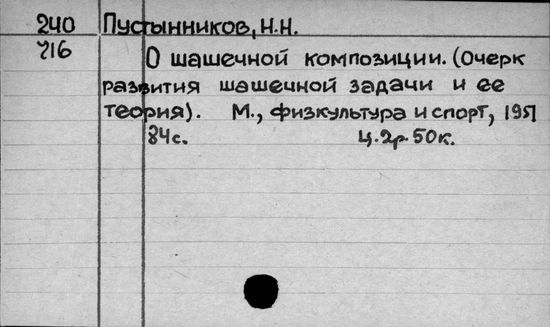 240 Пустынников, Н.Н.
716 О шашечной композиции. (Очерк
развития шашечной задачи и ее
теория). М., физкультура и спорт, 1951
84с. Ц. 2р. 50к.